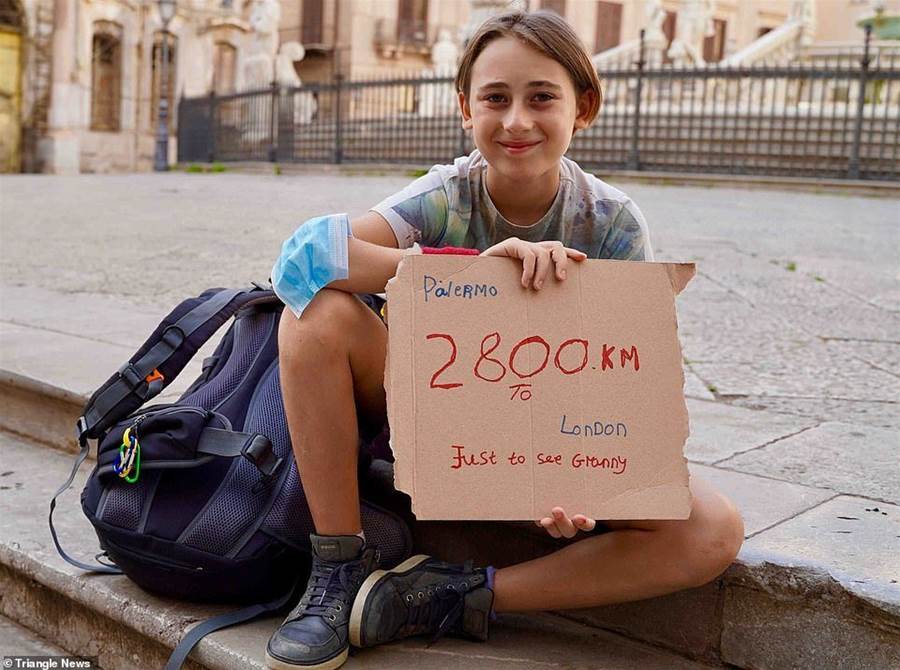 PalERMO
2800.KM
TO
LonDON
Just to see Granny
© Triangle News